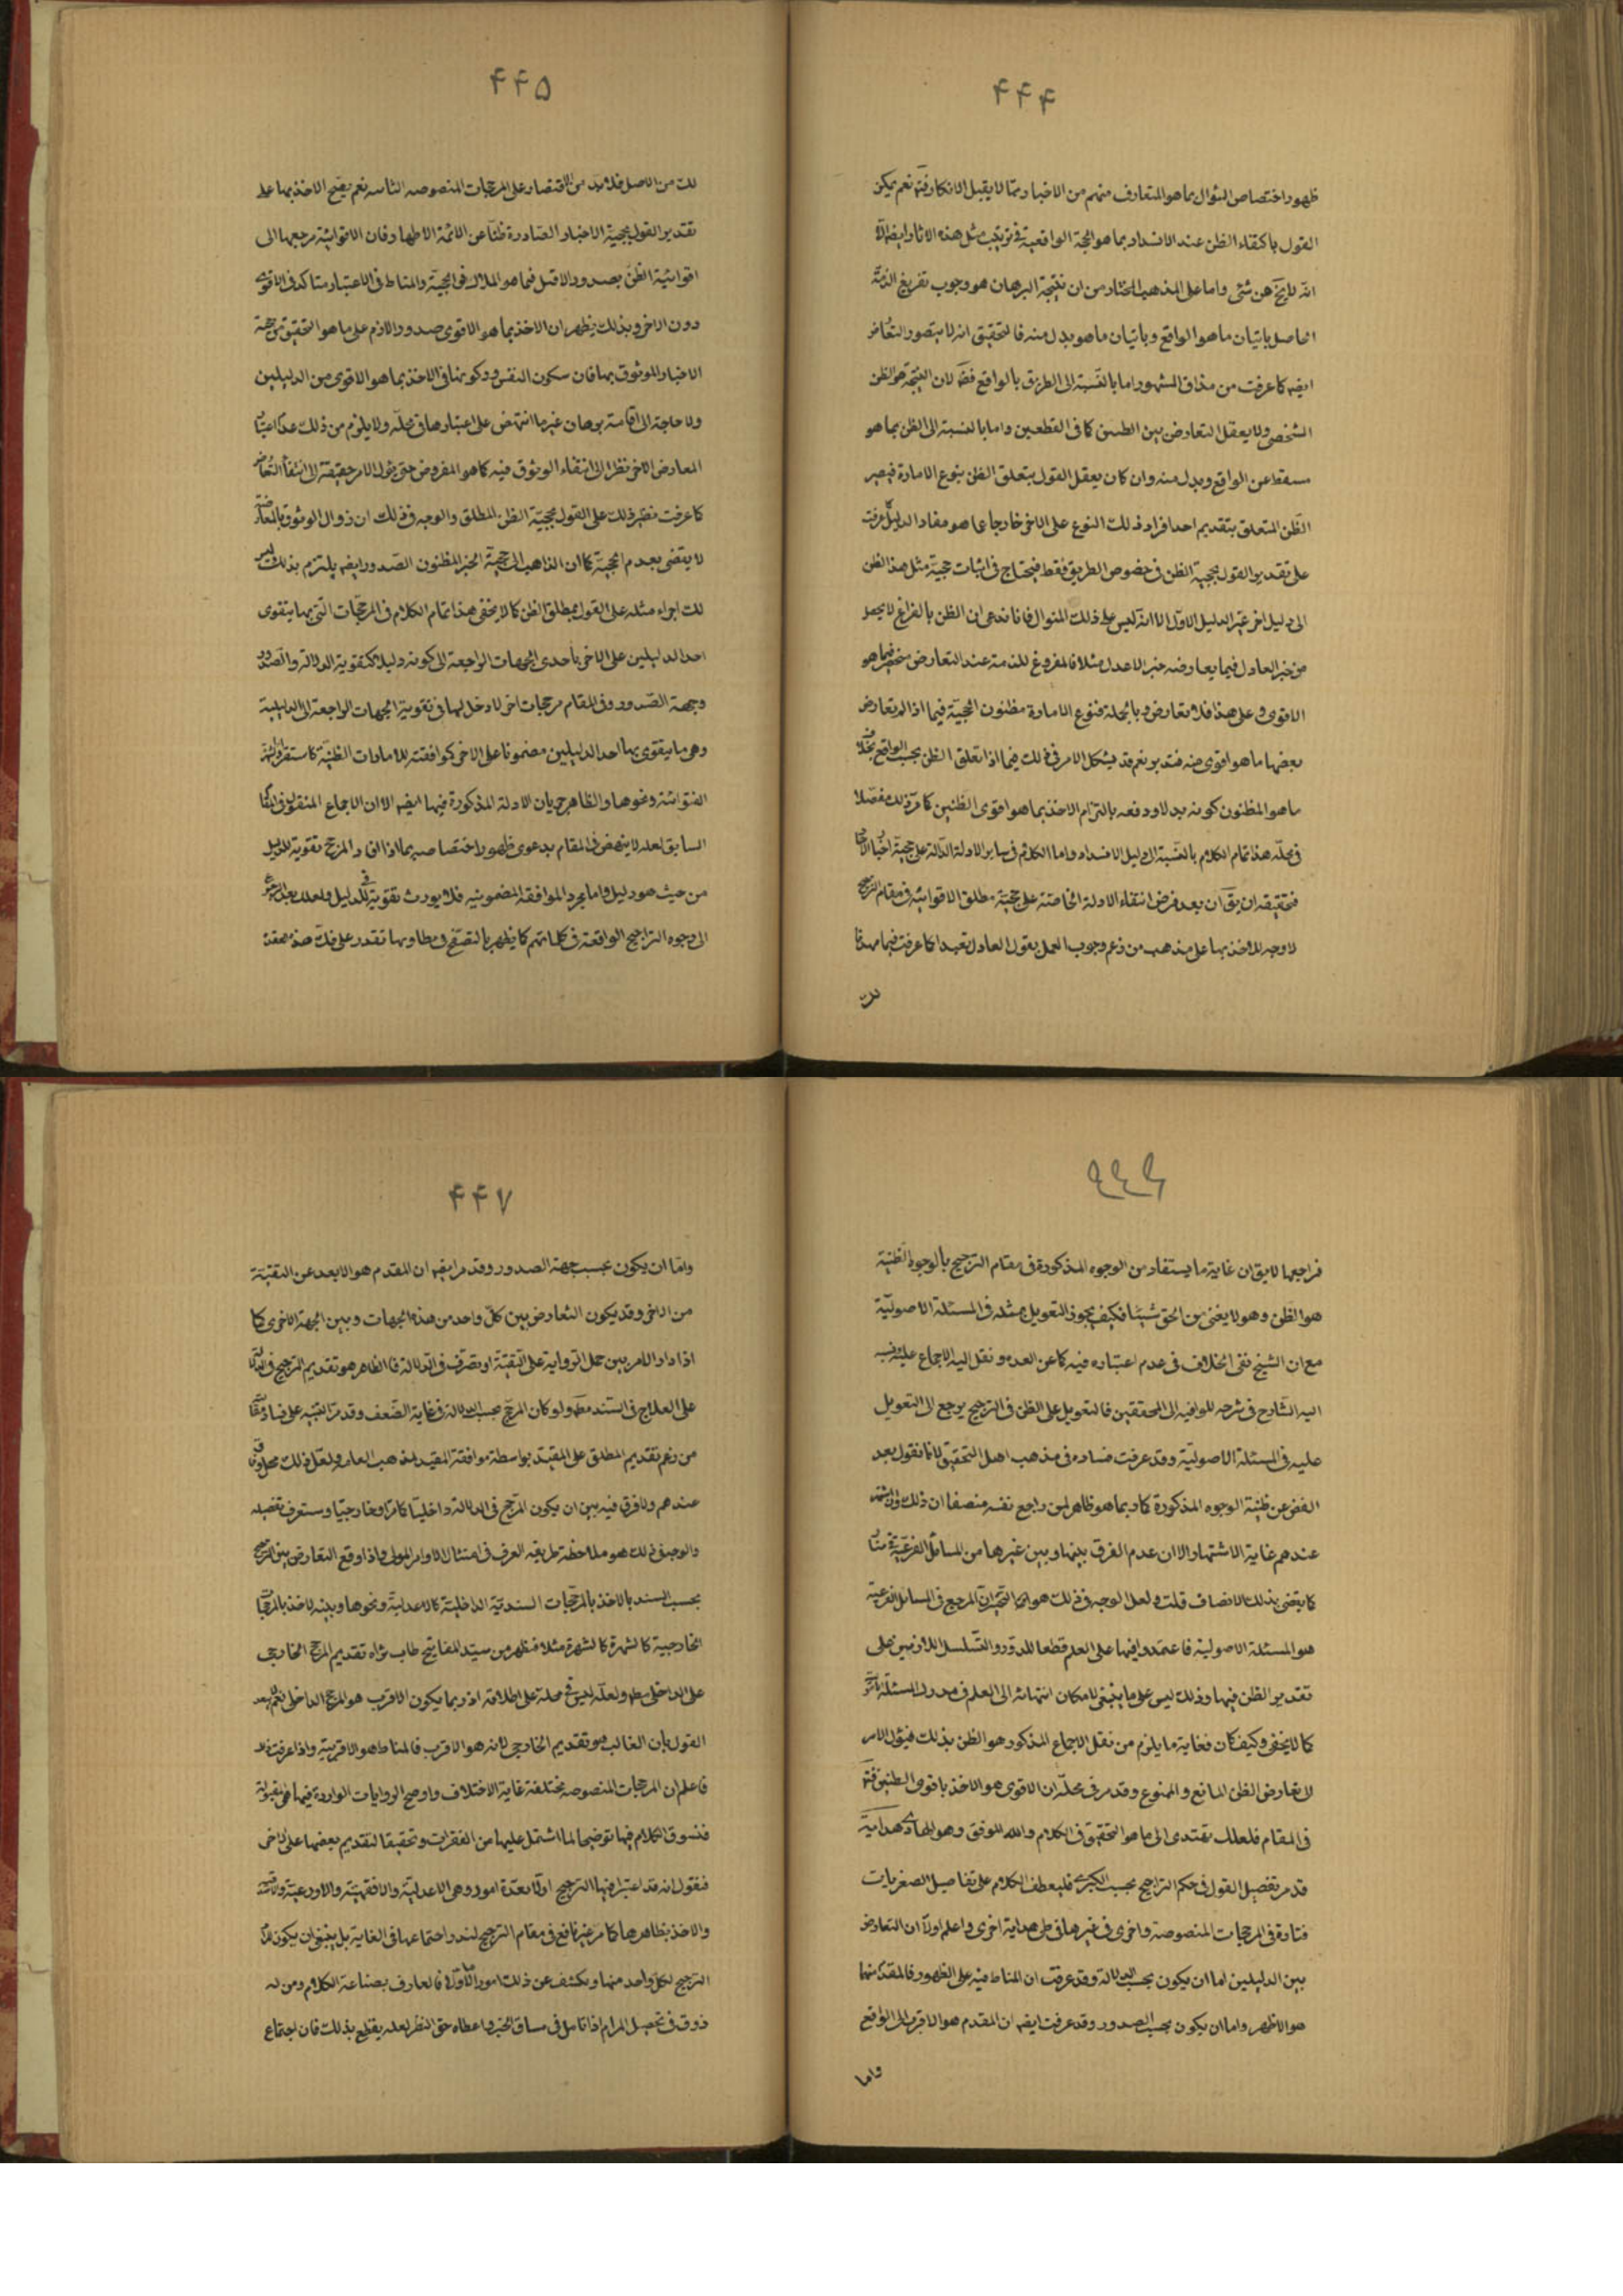 ۴۴۴
ظهور اختصاص السؤال بما هو المتعارف منهم من الاخبار ممّا لا يقبل الانكار فتم نعم يمكن
القول باكتفاء الظن عند الانسداد بما هو الحجة الواقعية في ترتيب مثل هذه الاثار ايضا الّا
انّه لا يخ عن شئ واما على المذهب المختار من ان نتيجة البرهان هو وجوب تفريغ الذمّة
الحاصل باتيان ما هو الواقع وباتيان ما هو بدل منه فالتحقيق انه لا يتصور التعارض
ايضه كما عرفت من مذاق المشهور اما بالنّسبة الى الطريق بالواقع فظم لان النتيجة هو الظن
الشخصى ولا يعقل التعارض بين الظنين كما فى القطعين واما بالنسبة الى الظن بما هو
مسقط عن الواقع وبدل منه وان كان يعقل القول بتعلق الظن بنوع الامارة فيصير
الظن المتعلق بتقديم احد افراد ذلك النوع على الاخر خارجا عما هو مفاد الدليل عرفت
على تقدير القول بحجية الظن فى خصوص الطريق فقط فيحتاج فى اثبات حجية مثل هذا الظن
الى دليل اخر غير الدليل الاول الا انه ليس على ذلك المنوال فانا ندعى ان الظن بالفراغ لا يحصل
من خبر العادل فيما يعارضه خبر الاعدل مثلا فالمفروغ للذمة عند التعارض منحصر فيما هو
الاقوى وعلى هذا فلا تعارض وبالجملة فنوع الامارة مظنون الحجية فيما اذا لم تعارض
بعضها ما هو اقوى منه فتدبر نعم قد يشكل الامر فى ذلك فيما اذا تعلق الظن بحسب الواقع بخلاف
ما هو المظنون كونه بدلا ودفعه بالتزام الاخذ بما هو اقوى الظنين كما مرّ ذلك مفصّلا
فى محلّه هذا تمام الكلام بالنّسبة الى دليل الانسداد واما الكلام فى ساير الادلة الدالة على حجية اخبار الاحاد
فتحقيقه ان يق ان بعد فرض انتفاء الادلة الخاصّة على حجيّة مطلق الاقوائية فى مقام الترجيح
لا وجه للاخذ بها على مذهب من زعم وجوب العمل بقول العادل تعبدا كما عرفت فيما مهدنا
لك
۴۴۵
لك من الاصل فلابد من الاقتصار على المرجحات المنصوصه الثابته نعم يصح الاخذ بها على
تقدير القول بحجية الاخبار الصّادرة ظنّا عن الائمة الاطهار فان الاقوائية مرجعها الى
اقوائية الظن بصدور الاقل فما هو الملاك فى الحجيّة والمناط فى الاعتبار متاكد فى الاقوى
دون الاخر وبذلك يظهر ان الاخذ بما هو الاقوى صدورا لازم على ما هو التحقيق من حجية
الاخبار الموثوق بها فان سكون النفس وركونها فى الاخذ بما هو الاقوى من الدليلين
ولا حاجة الى اقامة برهان غير ما انتهض على اعتبارها فى محلّه ولا يلزم من ذلك عدم اعتبار
المعارض الاخر نظرا الى انتفاء الوثوق فيه كما هو المفروض حتى يؤل الامر حقيقة الى انتفاء التعارض
كما عرفت نظير ذلك على القول بحجيّة الظن المطلق والوجه فى ذلك ان زوال الوثوق بالمعارضة
لا يقضى بعدم الحجية كما ان الذاهب الى حجية الخبر المظنون الصدور ايضه يلتزم بذلك وليس
لك اجراء مثله على القول بمطلق الظن كما لا يخفى هذا تمام الكلام فى المرجّحات الّتى بها يتقوى
احد الدليلين على الاخر باحدى الجهات الراجعة الى كونه دليلا كتقوية الدلالة والصّدور
وجهة الصّدور وفى المقام مرجحات اخر لا دخل لها فى تقوية الجهات الراجعة الى الدليلية
وهى ما يتقوى بها احد الدليلين مضمونا على الاخر كموافقته للامارات الظنيّة كاستقراء والشهرة
الفتوائية ونحوها والظاهر جريان الادلة المذكورة فيها ايضه الا ان الاجماع المنقول فى الكتاب
السابق لعله لا ينهض فى المقام بدعوى ظهور اختصاصه بما اذا افاد المرجح تقوية للدليل
من حيث هو دليل واما مجرد الموافقة المضمونيه فلا يورث تقوية فى الدليل ولعلك بعد الرجوع
الى وجوه التراجيح الواقعة فى كلماتهم كما يظهر بالتصفّح فى مطاويها تقدر على فك هذه العقدة
۴۴۶
فراجعها لا يق ان غاية ما يستفاد من الوجوه المذكورة فى مقام الترجيح بالوجوه الظنية
هو الظن وهو لا يغنى من الحق شيئا فكيف يجوز التعويل بمثله فى المسئلة الاصوليّة
مع ان الشيخ نفى الخلاف فى عدم اعتباره فيه كما عن العده ونقل اليه الاجماع عليه نسبه
اليه الشّارح فى شرحه للوافيه الى المحققين فالتعويل على الظن فى الترجيح يرجع الى التعويل
عليه فى المسئلة الاصوليّة وقد عرفت فساده فى مذهب اهل التحقيق لانا نقول بعد
الغض عن ظنية الوجوه المذكورة كما ربما هو ظاهر لمن راجع نفسه منصفا ان ذلك وان اشتهر
عندهم غاية الاشتهار الا ان عدم الفرق بينها وبين غيرها من المسائل الفرعية متّا
كما يقضى بذلك الانصاف قلت ولعل الوجه فى ذلك هو ان المرجع فى المسائل الفرعية
هو المسئلة الاصولية فاعتمدوا فيها على العلم قطعا للدّور والتّسلسل اللازمين على
تقدير الظن فيها وذلك ليس على ما ينبغى لامكان انتهائه الى العلم فى مدرك المسئلة
كما لا يخفى وكيف كان فغاية ما يلزم من نقل الاجماع المذكور هو الظن بذلك فيؤل الامر
الى تعارض الظن المانع والممنوع وقد مر فى محلّه ان الاقوى هو الاخذ باقوى الظنين فتم
فى المقام فلعلك تهتدى الى ما هو التحقيق فى الكلام والله الموفق وهو الهادى هداية
قد مر تفصيل القول فى حكم التراجيح بحسب الكبرى فليعطف الكلام على تفاصيل الصغريات
فتارة فى المرجحات المنصوصة واخرى فى غيرها فى طى هداية اخرى واعلم اولا ان التعارض
بين الدليلين اما ان يكون بحسب الدلالة وقد عرفت ان المناط فيه على الظهور فالمقدّم منهما
هو الاظهر واما ان يكون بحسب الصدور وقد عرفت ايضه ان المقدم هو الاقرب الى الواقع
واما
۴۴۷
وامّا ان يكون بحسب جهة الصدور وقد مر ايضه ان المقدم هو الابعد عن التقيّة
من الاخر وقد يكون التعارض بين كلّ واحد من هذه الجهات وبين الجهة الاخرى كما
اذا دار الامر بين حمل الرواية على التقيّة او تصرّف فى الدلالة فالظاهر هو تقديم الترجيح فى الدلالة
على العلاج فى السّند مطم ولو كان المرجّح بحسب الدلالة فى غاية الضّعف وقد مرّ التنبيه على فساد
من زعم تقديم المطلق على المقيّد بواسطة موافقة المقيد لمذهب العامه ولعل ذلك محل وفاق
عندهم ولا فرق فيه بين ان يكون المرجّح فى الدلالة داخليّا كما مرّ وخارجيّا وستعرف تفصيله
والوجه فى ذلك هو ملاحظة طريقه العرف فى امتثال الاوامر المولى واذا وقع التعارض بين الترجيح
بحسب السند بالاخذ بالمرجّحات السنديّة الداخلية كالاعدلية ونحوها وبينه بالاخذ بالمرجحات
الخارجية كالشهرة مثلا فظهر من سيّد المفاتيح طاب ثراه تقديم المرجح الخارجى
على الداخلى مطم ولعلّه ليس فى محلّه على اطلاقه اذ ربما يكون الاقرب هو المرجح الداخلى نعم لا يبعد
القول بان الغالب هو تقديم الخارجى لانه هو الاقرب فالمناط هو الاقربية واذا عرفت هذا
فاعلم ان المرجحات المنصوصه مختلفة غاية الاختلاف واوضح الروايات الواردة فيها هى مقبولة
فنسوق الكلام فيها توضيحا لما اشتمل عليها من الفقرات وتحقيقا لتقديم بعضها على الاخر
فنقول انه قد اعتبر فيها الترجيح اولا بعدّة امور وهى الاعدليّة والافقهيّة والاورعيّة
والاخذ بظاهرها كما مر غير نافع فى مقام الترجيح لندر اجتماعها فى الغاية بل ينبغى ان يكون
الترجيح لكل واحد منها ويكشف عن ذلك امور الاول ان العارف بصناعة الكلام ومن له
ذوق فى تحصيل المرام اذا تامل فى مساق الخبر واعطاه حق النظر لعله يقطع بذلك فان اجتماع